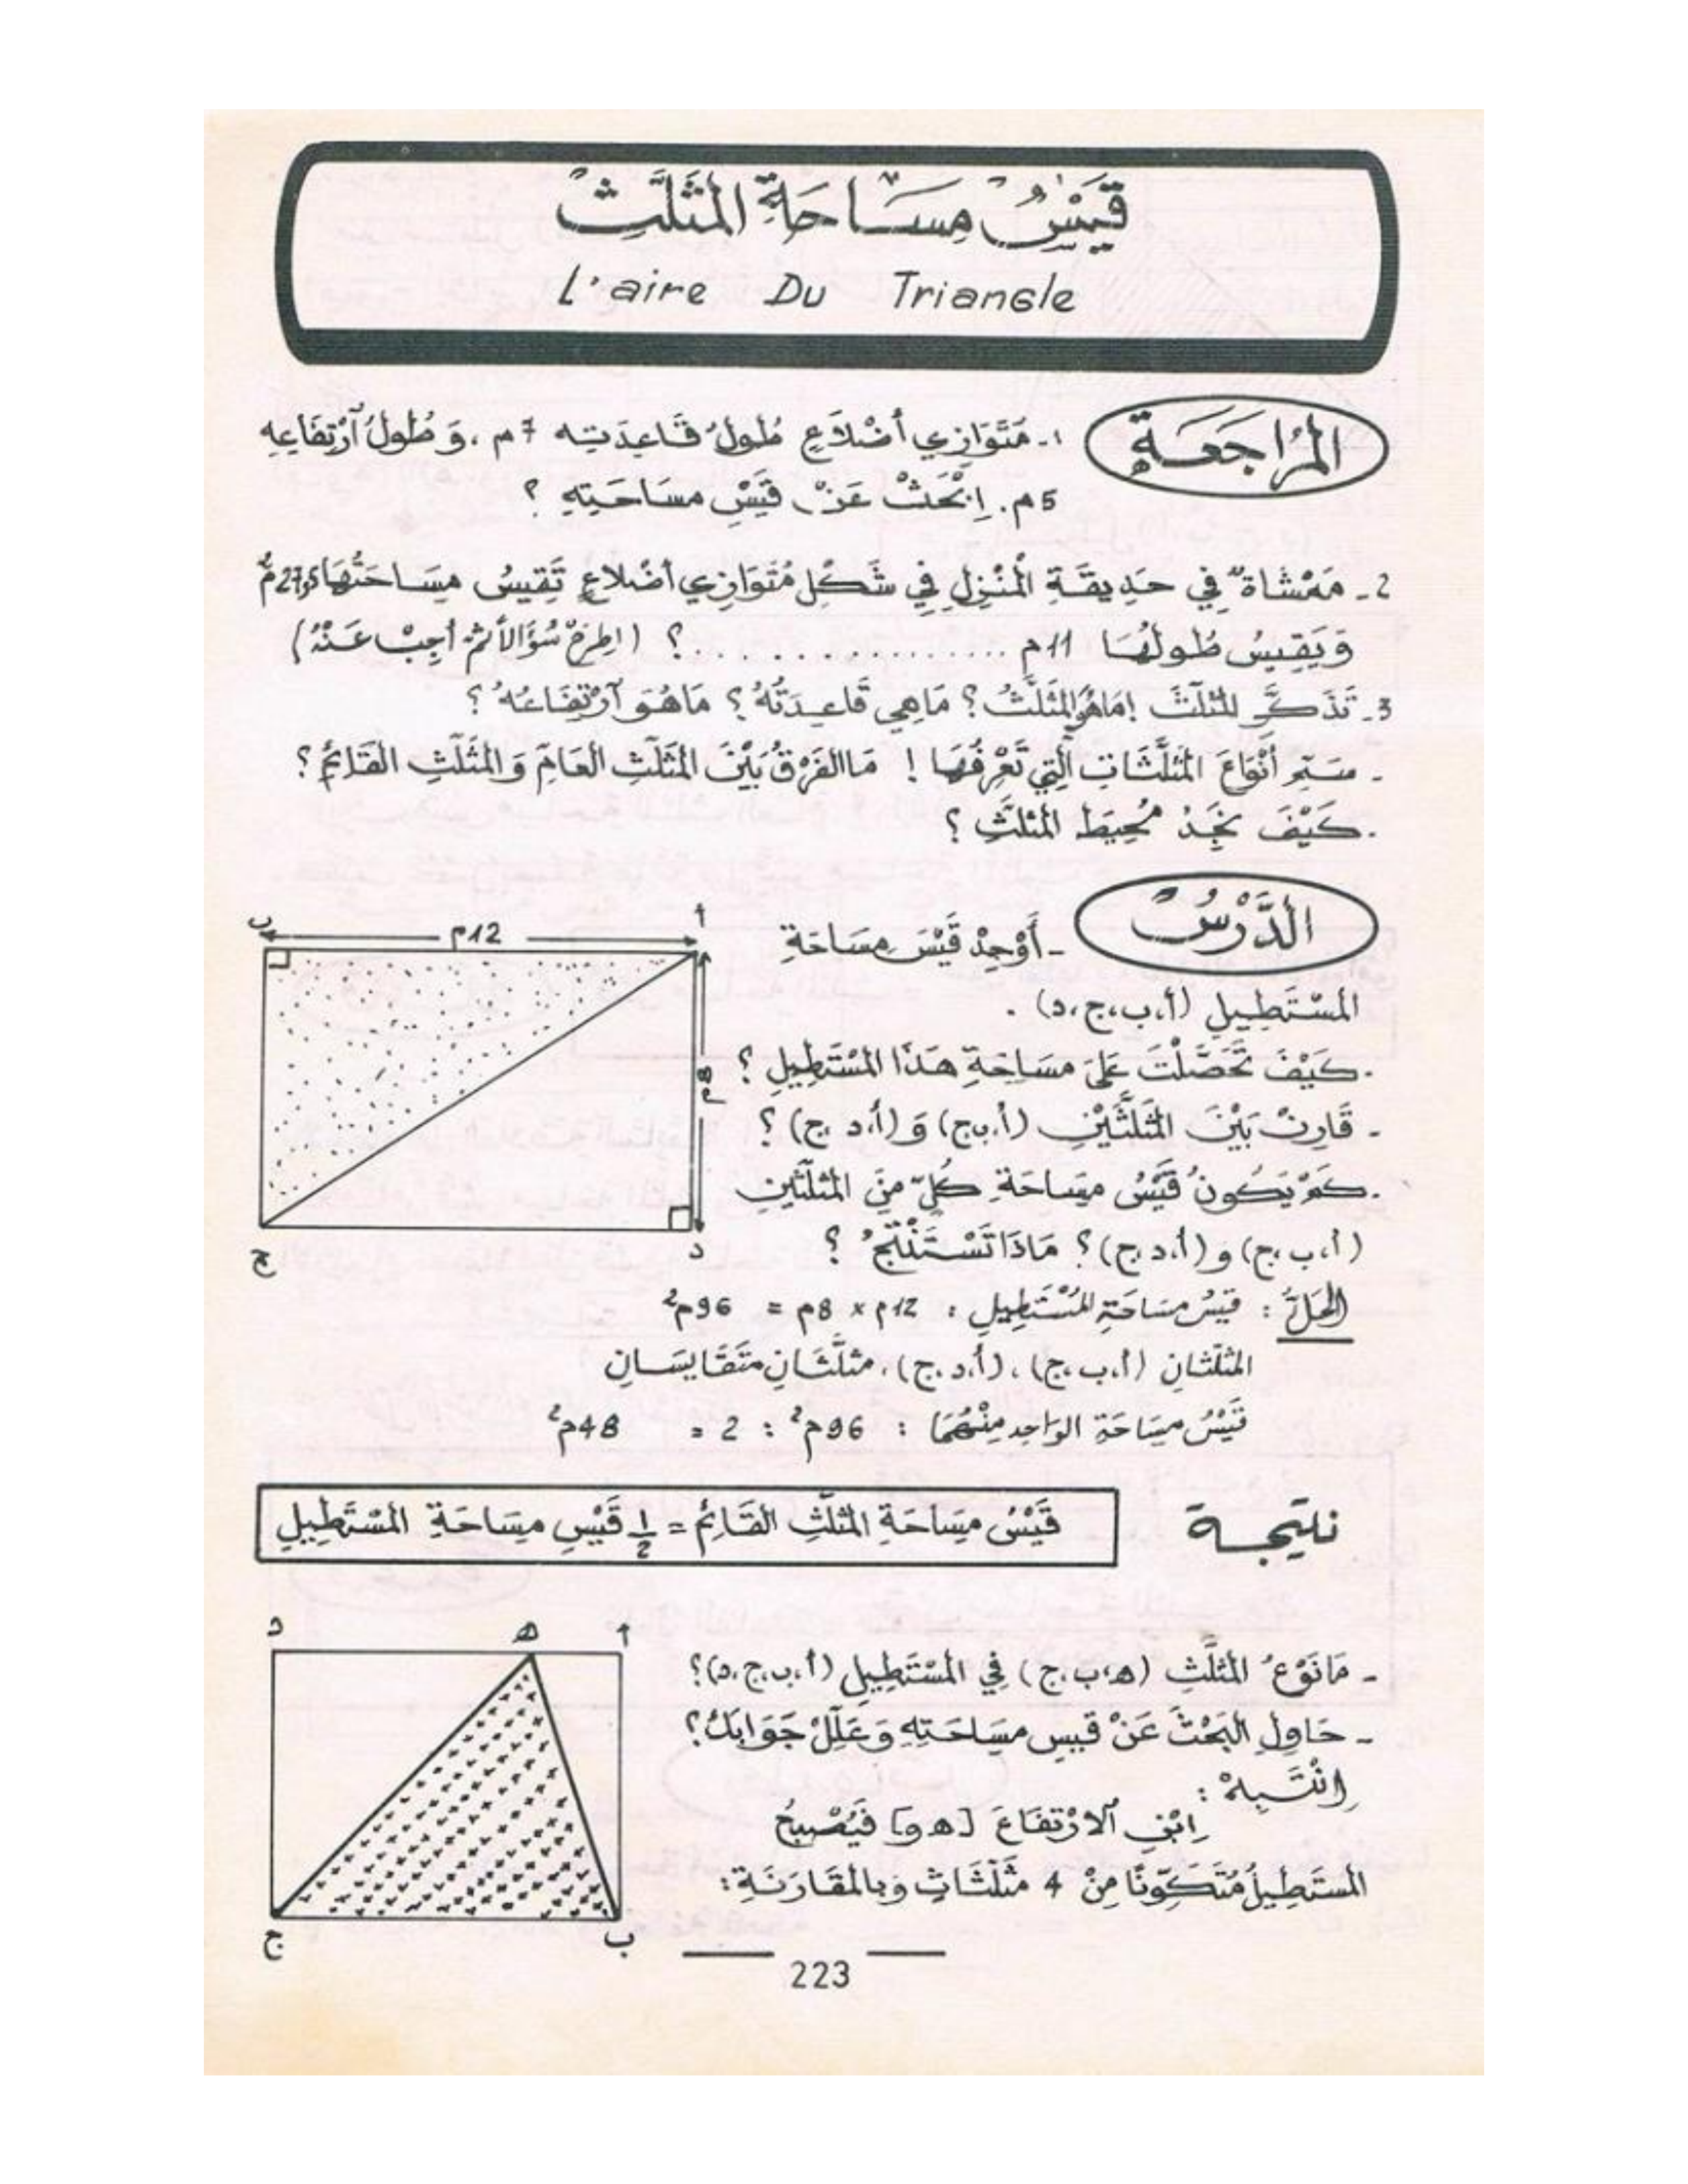 قَيْسُ مِسَاحَةِ المُثَلَّثِ
L'aire Du Triangle
المُرَاجَعَةِ
1- مُتَوَازِي أَضْلَاعٍ طُولُ قَاعِدَتِه 7م، وَطُولُ ٱرْتِفَاعِهِ
5م. اِبْحَثْ عَنْ قَيْسِ مِسَاحَتِهِ ؟
2- مَمْشَاةٌ فِي حَدِيقَةِ المَنْزِلِ فِي شَكْلِ مُتَوَازِي أَضْلَاعٍ تَقِيسُ مِسَاحَتُهَا 27,5م²
وَيَقِيسُ طُولُهَا 11م ................؟ (اِطْرَحْ سُؤَالًا ثُمَّ أَجِبْ عَنْهُ)
3- تَذَكَّرِ المُثَلَّثَ ! مَا هُوَ المُثَلَّثُ ؟ مَا هِي قَاعِدَتُهُ ؟ مَا هُوَ ٱرْتِفَاعُهُ ؟
- سَمِّ أَنْوَاعَ المُثَلَّثَاتِ الَّتِي تَعْرِفُهَا ! مَا الفَرْقُ بَيْنَ المُثَلَّثِ العَامِّ وَالمُثَلَّثِ القَائِمِ ؟
- كَيْفَ نَجِدُ مُحِيطَ المُثَلَّثِ ؟
الدَّرْسُ
- أَوْجِدْ قَيْسَ مِسَاحَةِ
المُسْتَطِيلِ (أ،ب،ج،د) .
- كَيْفَ تَحَصَّلْتَ عَلَى مِسَاحَةِ هَذَا المُسْتَطِيلِ ؟
- قَارِنْ بَيْنَ المُثَلَّثَيْنِ (أ،ب،ج) وَ (أ،د،ج) ؟
- كَمْ يَكُونُ قَيْسُ مِسَاحَةِ كُلٍّ مِنَ المُثَلَّثَيْنِ
(أ،ب،ج) و (أ،د،ج) ؟ مَاذَا تَسْتَنْتِجُ ؟
ب
12م
أ
8م
ج
د
الحَلُّ : قَيْسُ مِسَاحَةِ المُسْتَطِيلِ : 12م × 8م = 96م²
المُثَلَّثَانِ (أ،ب،ج)، (أ،د،ج)، مُثَلَّثَانِ مُتَقَايِسَانِ
قَيْسُ مِسَاحَةِ الوَاحِدِ مِنْهُمَا : 96م² : 2 = 48م²
نتيجة
قَيْسُ مِسَاحَةِ المُثَلَّثِ القَائِمِ = 1/2 قَيْسِ مِسَاحَةِ المُسْتَطِيلِ
- مَا نَوْعُ المُثَلَّثِ (ه،ب،ج) فِي المُسْتَطِيلِ (أ،ب،ج،د) ؟
- حَاوِلِ البَحْثَ عَنْ قَيْسِ مِسَاحَتِهِ وَعَلِّلْ جَوَابَكَ ؟
اِنْتَبِهْ :
اِبْنِ ٱلارْتِفَاعَ [ه و] فَيُصْبِحُ
المُسْتَطِيلُ مُتَكَوِّنًا مِنْ 4 مُثَلَّثَاتٍ وَبِالمُقَارَنَةِ :
د
ه
أ
ج
ب
223